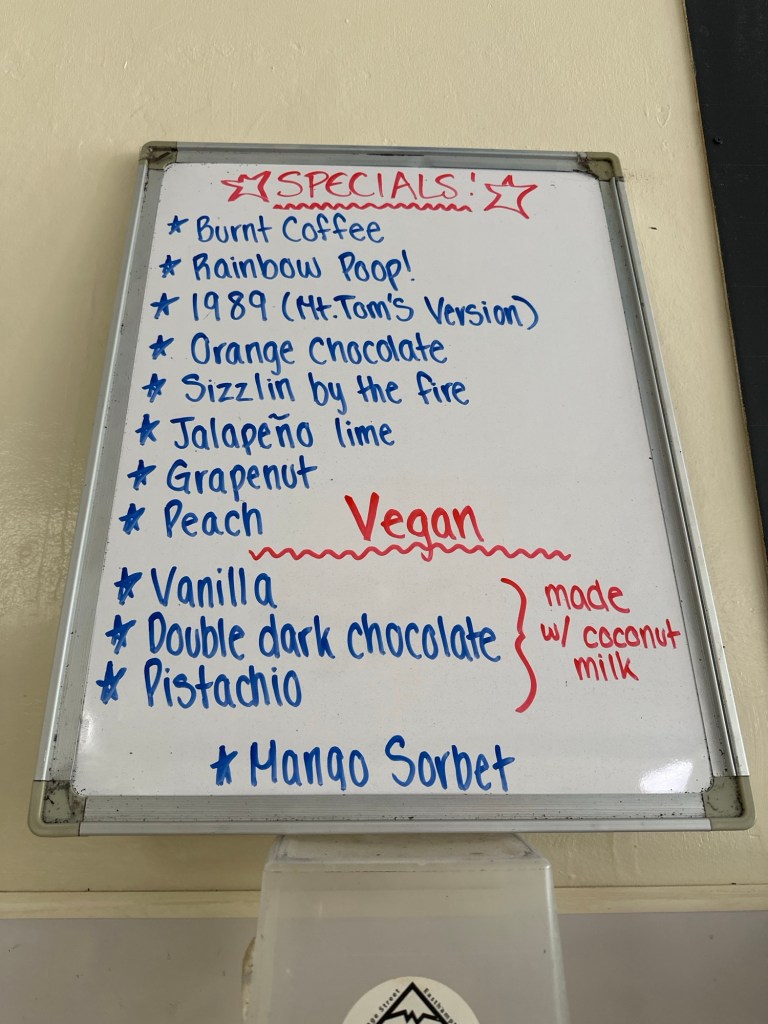 SPECIALS!
Burnt Coffee
Rainbow Poop!
1989 (Mt. Tom's Version)
Orange Chocolate
Sizzlin by the fire
Jalapeño lime
Grapenut
Peach
Vegan
Vanilla
Double dark chocolate
Pistachio
made
w/ coconut
milk
Mango Sorbet
Street